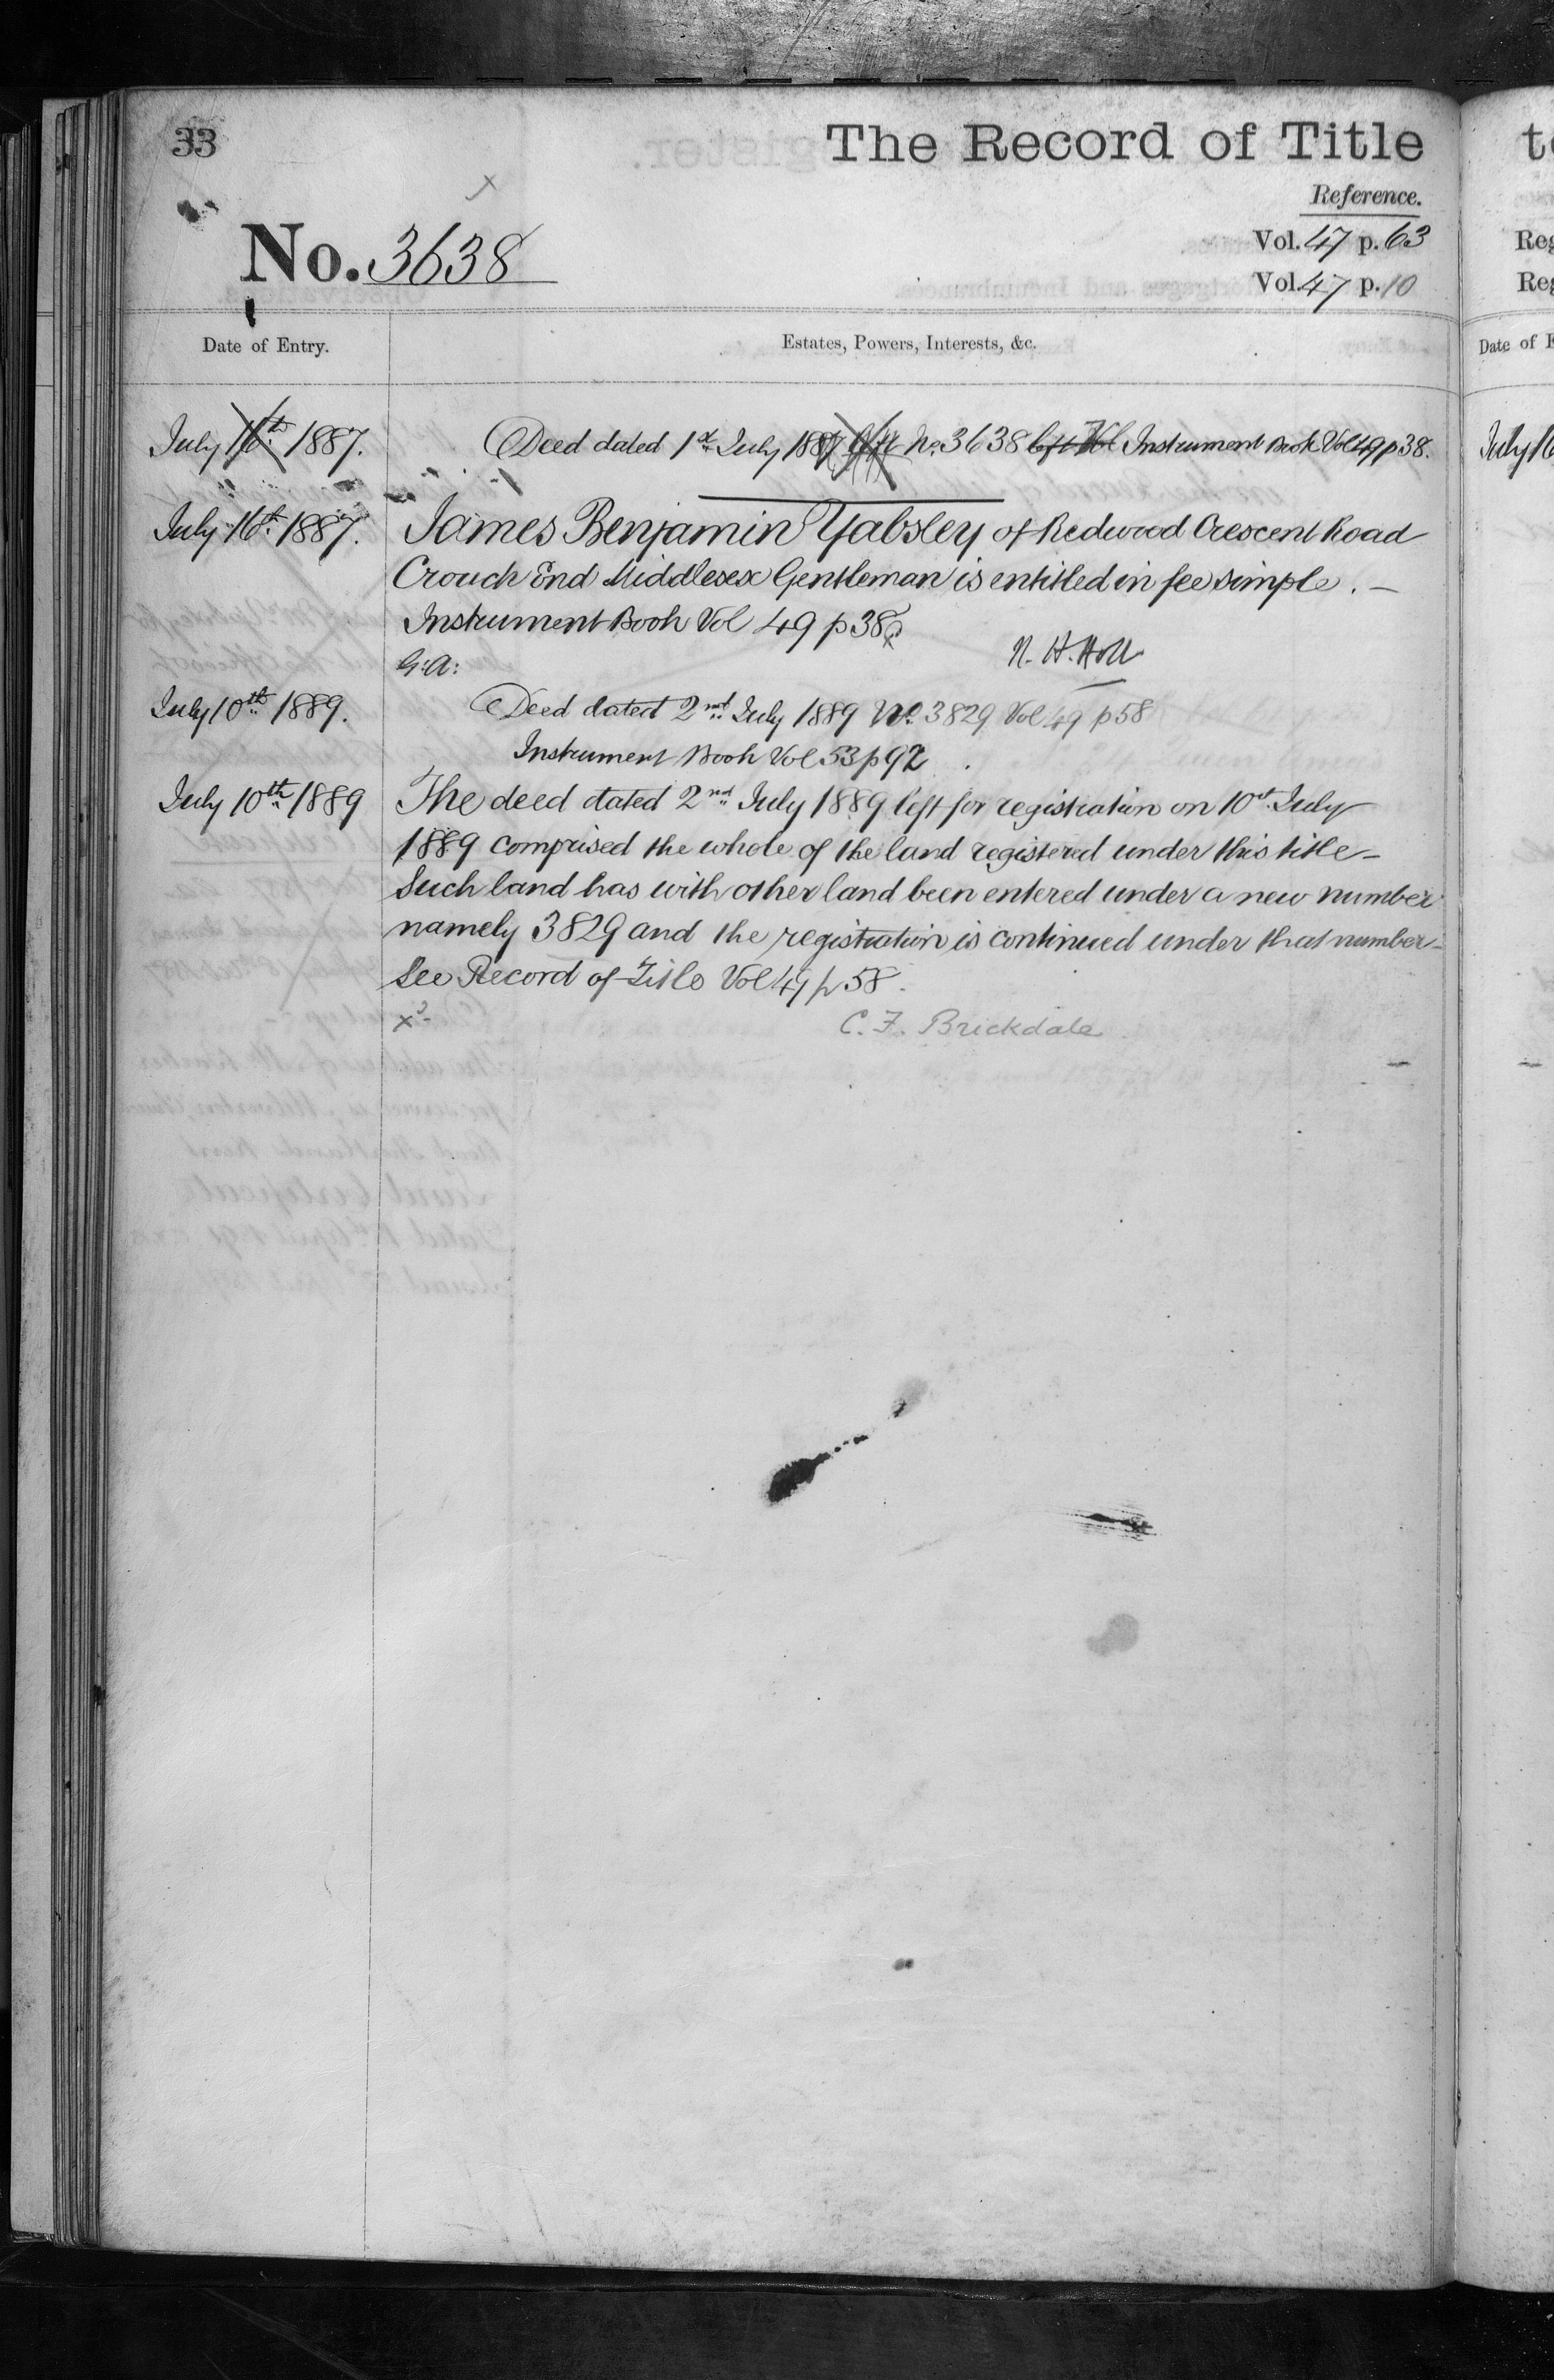 33
The Record of Title
Reference.
No. 3638
Vol. 47 p. 63
Vol. 47 p. 10
Date of Entry.
Estates, Powers, Interests, &c.
July 16th 1887. Deed dated 1st July 1887 No. 3638 left Vol Instrument Book Vol 49 p 38.
July 16th 1887. James Benjamin Yabsley of Redwood Crescent Road
Crouch End Middlesex Gentleman is entitled in fee simple. —
Instrument Book Vol 49 p 38
G: A: N. H. Holl
July 10th 1889. Deed dated 2nd July 1889 No. 3829 Vol 49 p 58
Instrument Book Vol 53 p 92
July 10th 1889 The deed dated 2nd July 1889 left for registration on 10th July
1889 comprised the whole of the land registered under this title —
Such land has with other land been entered under a new number
namely 3829 and the registration is continued under that number —
See Record of Title Vol 49 p 58.
C. F. Brickdale
t
Reg
Reg
Date of E
July 16